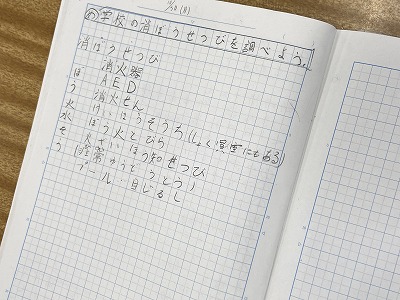 11/30(月)
の学校の消ぼうせつびを調べよう。
消ぼうせつび
消火器
AED
消火せん
けいほうそうち(しょく員室にもある)
ぼう火とびら
火さいほう知せつび
ゆうどうとう
プール 目じるし
ぼう火水そう